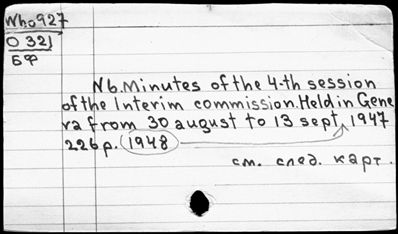 Who927
О 321
БФ
N6. Minutes of the 4-th session
of the Interim commission. Held in Gene
va from 30 august to 13 sept, 1947
226 p. 1948
см. след. карт.